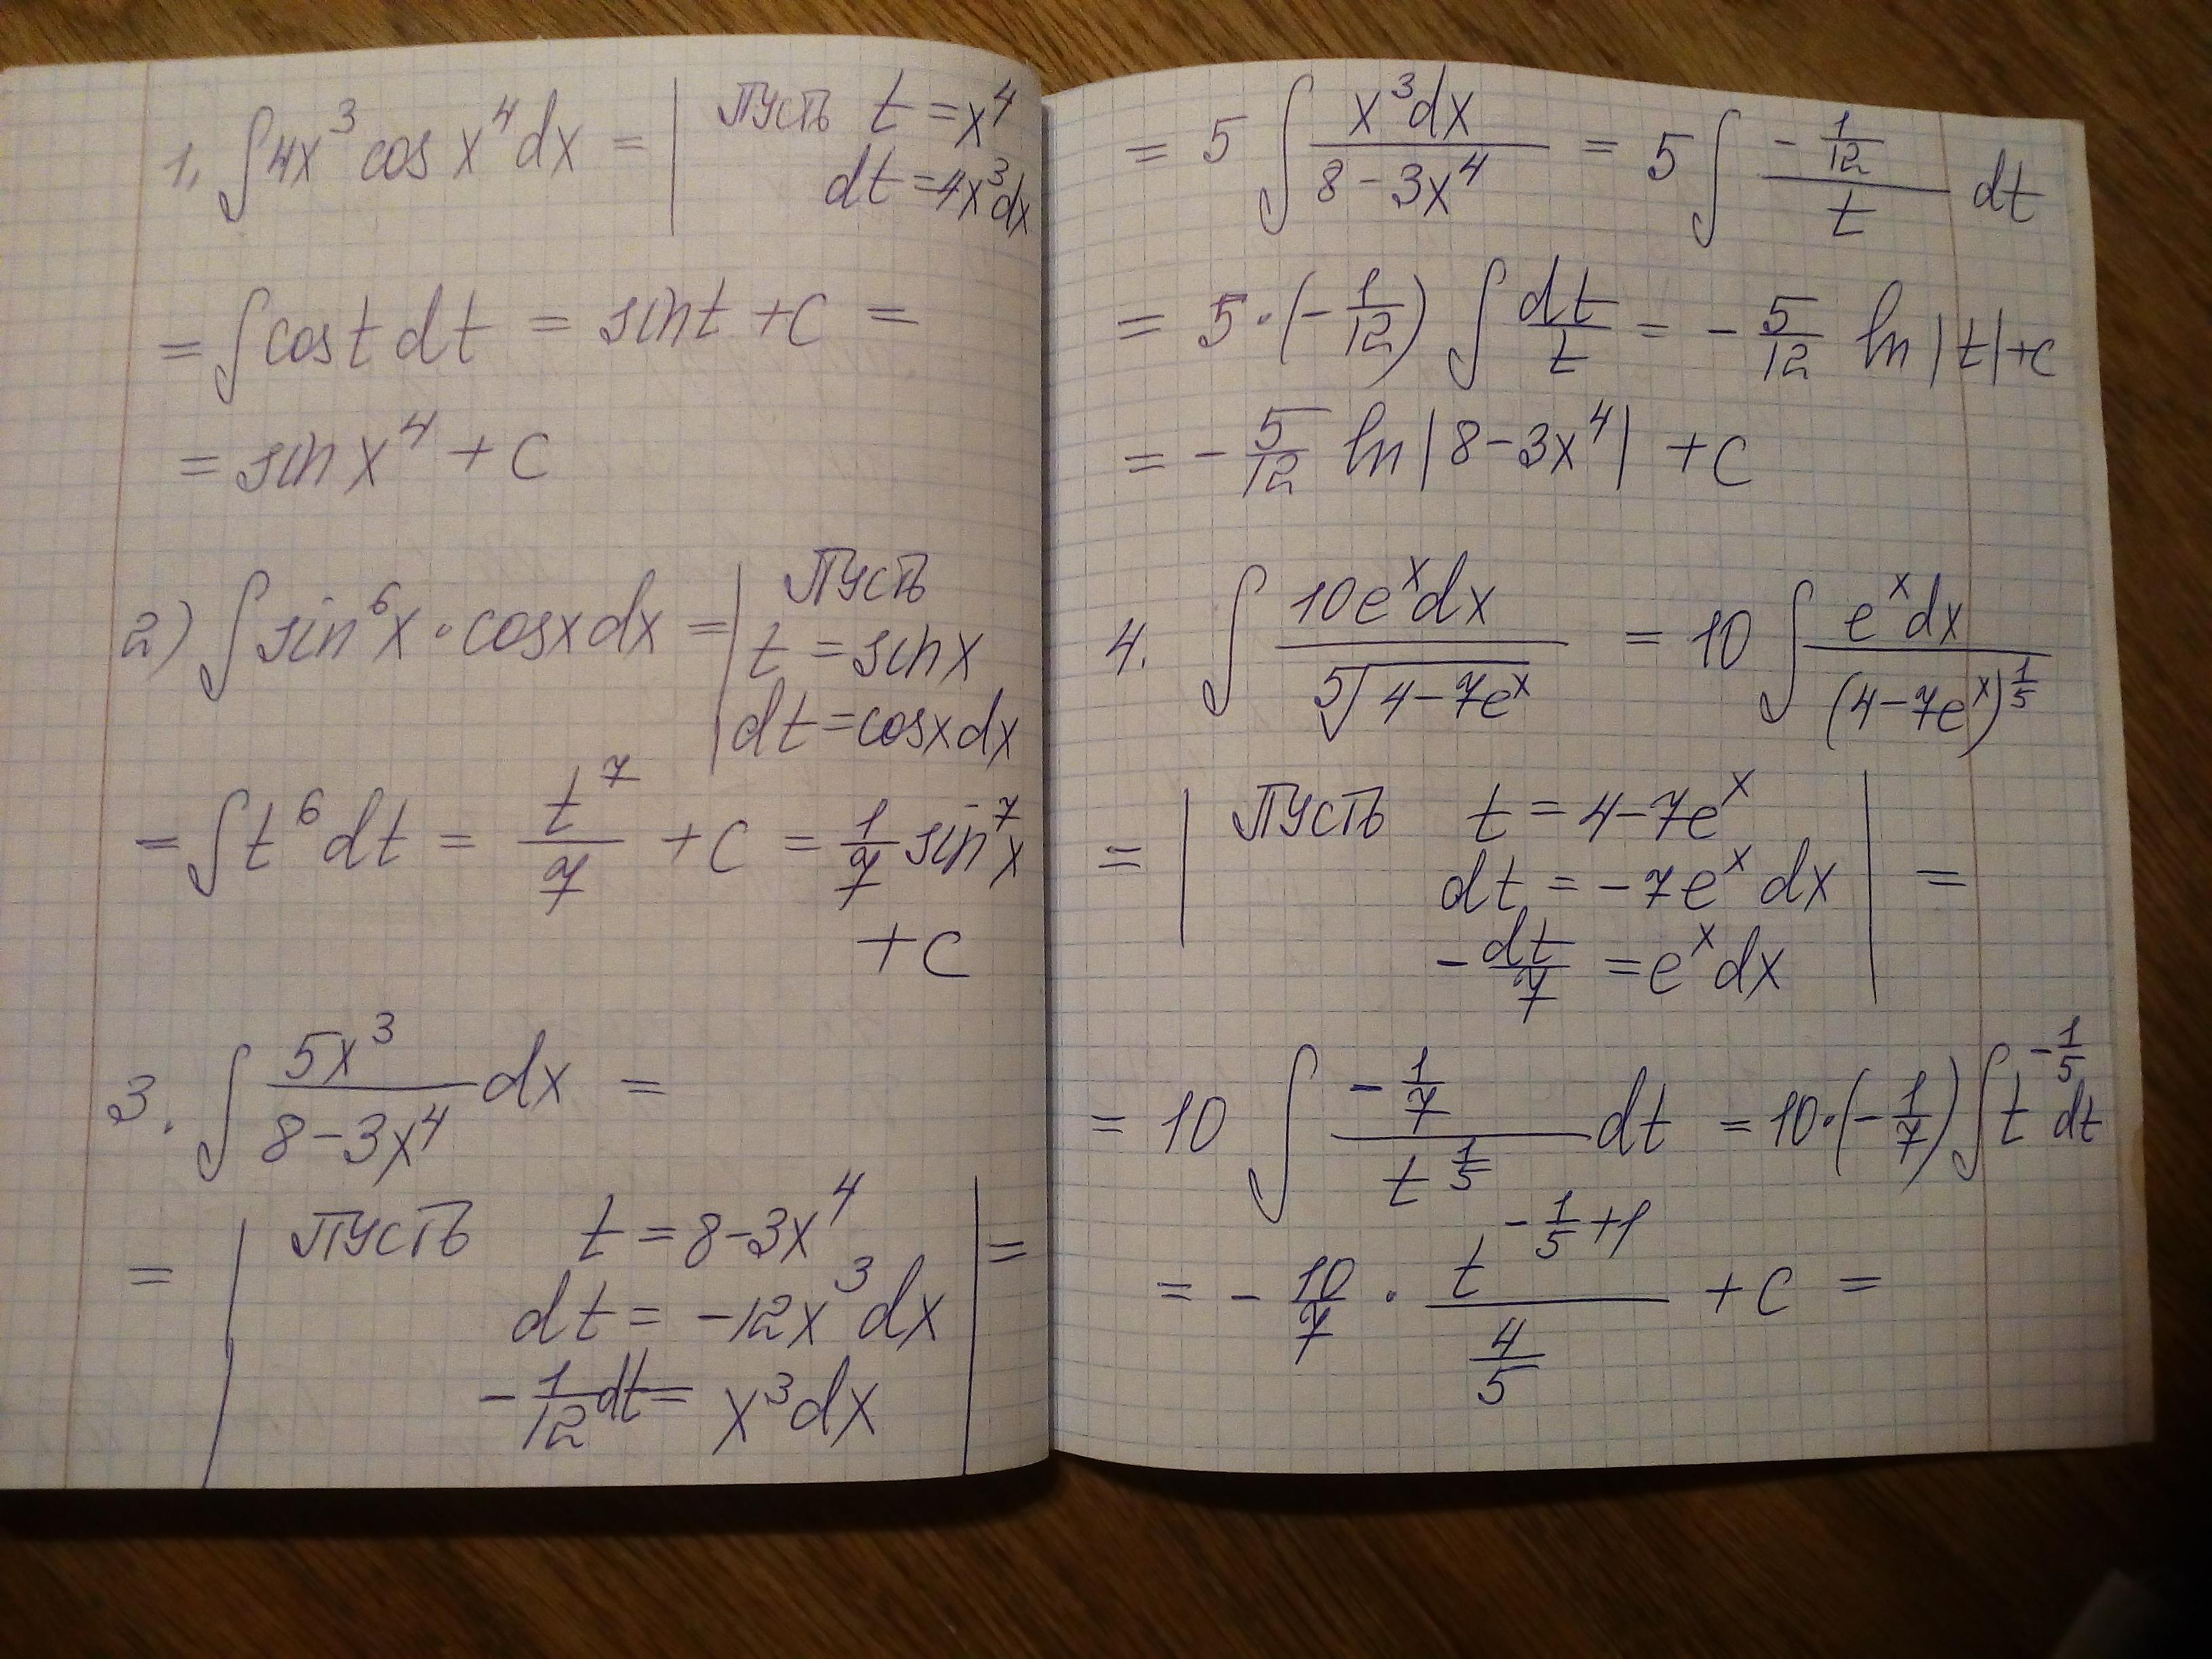 1. ∫4x³ cos x⁴ dx = | Пусть t = x⁴
dt = 4x³dx
= ∫cos t dt = sin t + C =
= sin x⁴ + C
2) ∫sin⁶x · cosx dx = | Пусть
t = sin x
dt = cosx dx
= ∫t⁶ dt = t⁷/7 + C = 1/7 sin⁷x
+ C
3. ∫ 5x³/(8-3x⁴) dx =
= | Пусть t = 8-3x⁴ | =
dt = -12x³dx
-1/12 dt = x³dx
= 5 ∫ x³dx/(8-3x⁴) = 5 ∫ (-1/12)/t dt
= 5·(-1/12) ∫ dt/t = -5/12 ln|t|+C
= -5/12 ln|8-3x⁴| + C
4. ∫ 10eˣdx/⁵√(4-7eˣ) = 10 ∫ eˣdx/(4-7eˣ)^(1/5)
= | Пусть t = 4-7eˣ
dt = -7eˣ dx | =
-dt/7 = eˣdx
= 10 ∫ (-1/7)/t^(1/5) dt = 10·(-1/7) ∫t^(-1/5) dt
= -10/7 · t^(-1/5+1)/(4/5) + C =